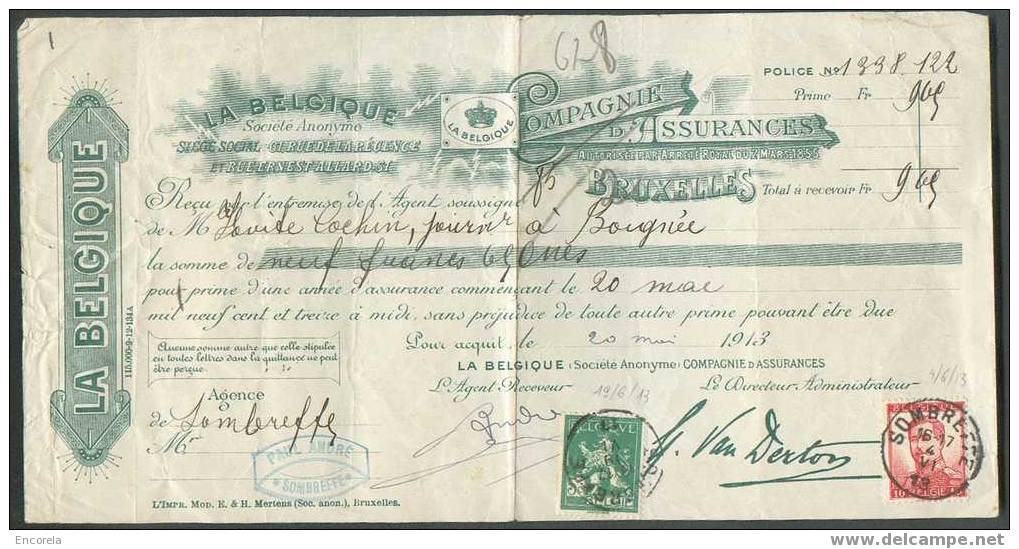 1
628
POLICE No 1338.122
Prime Fr 9,65
LA BELGIQUE
Société Anonyme
SIÈGE SOCIAL: 61 RUE DE LA RÉGENCE
ET RUE ERNEST ALLARD
LA BELGIQUE
COMPAGNIE
D'ASSURANCES
AUTORISÉE PAR ARRÊTÉ ROYAL DU 2 MARS 1855
BRUXELLES
Total à recevoir Fr 9,65
Reçu par l'entremise de l'Agent soussigné
de M Cochin, journr à Boignée
la somme de neuf francs 65 Cmes
pour prime d'une année d'assurance commençant le 20 mai
mil neuf cent et treize à midi, sans préjudice de toute autre prime pouvant être due
Aucune somme autre que celle stipulée
en toutes lettres dans la quittance ne peut
être perçue.
Pour acquit, le 20 mai 1913
LA BELGIQUE (Société Anonyme) COMPAGNIE D'ASSURANCES
L'Agent-Receveur 19/6/13 Le Directeur-Administrateur 4/6/13
Agence
de Sombreffe
Mr
PAUL ANDRÉ
SOMBREFFE
André
SOMBREFFE
16-17
4
VI
13
10 BELGIË 10
L'IMPR. MOD. E. & H. Mertens (Soc. anon.), Bruxelles.
LA BELGIQUE
115.000-9-12-134A
Encorela
www.delcampe.net